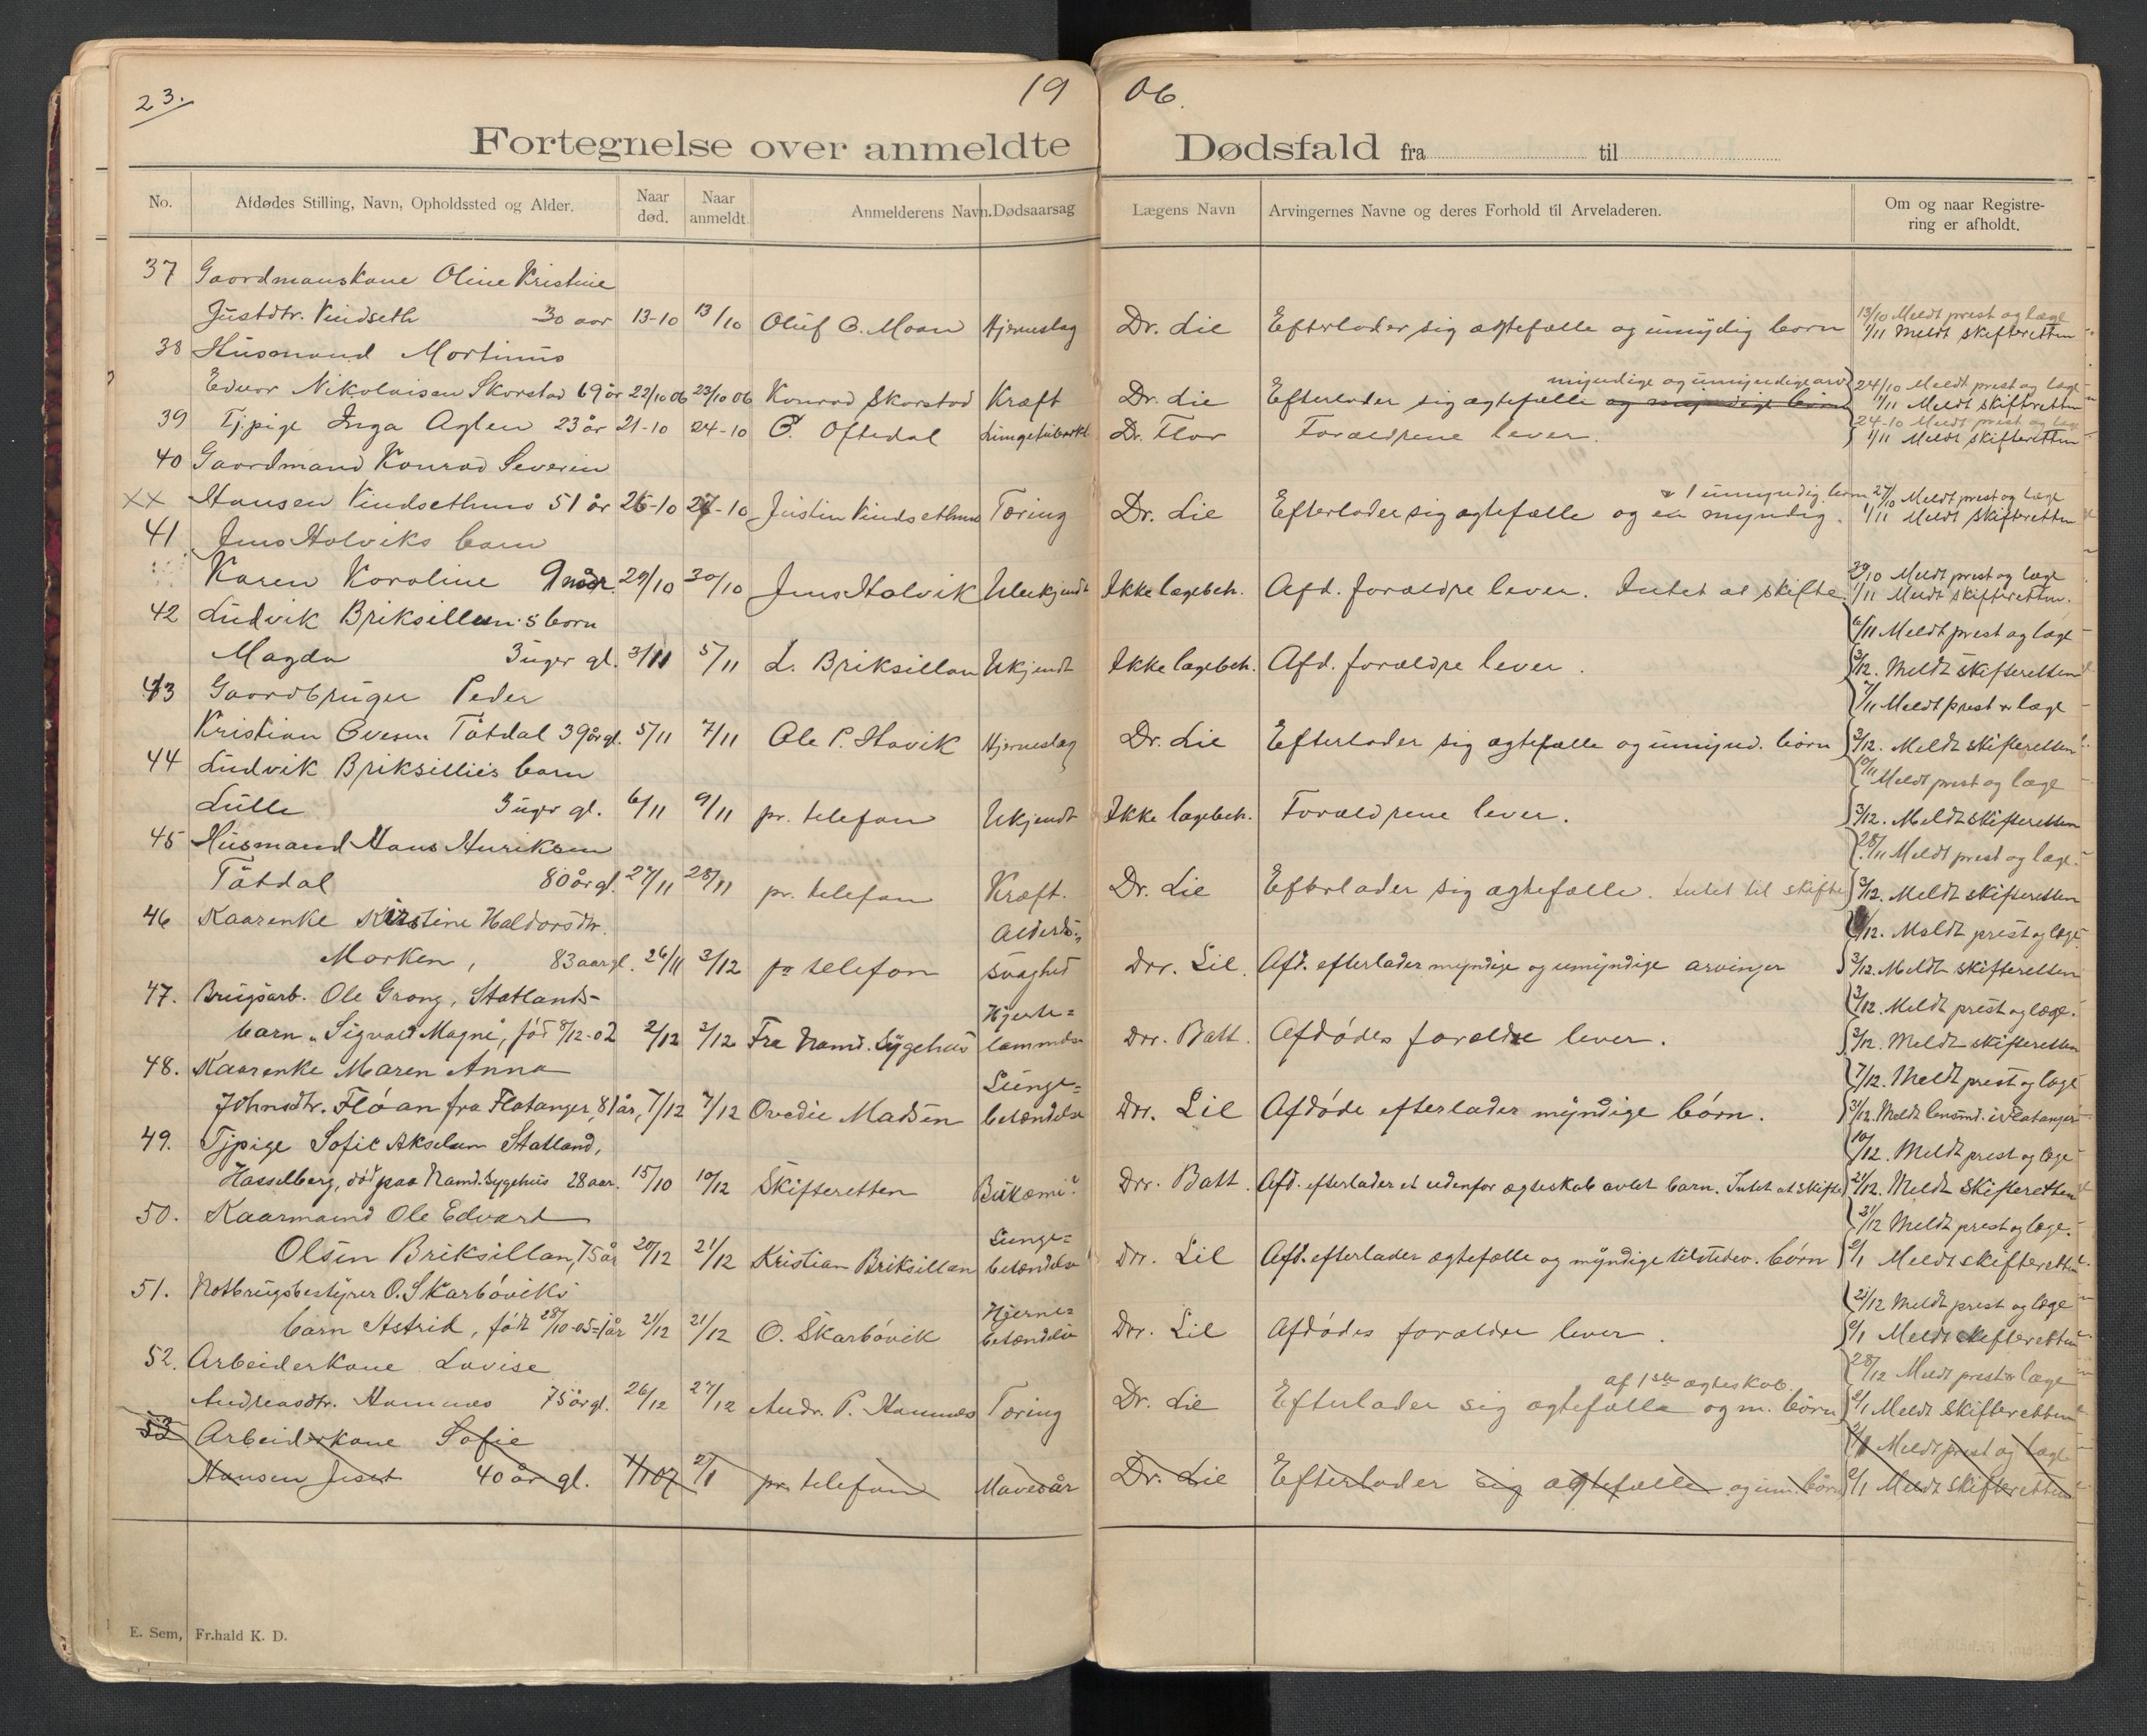 23.
19 06.
Fortegnelse over anmeldte Dødsfald fra til
No. Afdødes Stilling, Navn, Opholdssted og Alder. Naar død. Naar anmeldt. Anmelderens Navn. Dødsaarsag Lægens Navn Arvingernes Navne og deres Forhold til Arveladeren. Om og naar Registrering er afholdt.
37 Gaardmanskone Oline Kristine
Justdtr. Vindseth 30 aar 13-10 13/10 Oluf C. Moan Hjerneslag Dr. Lie Efterlader sig ægtefælle og umydig børn 13/10 Meldt prest og læge
1/11 Meldt skifteretten
38 Husmand Mortinus
myndige og umyndige arv 24/10 Meldt prest og læge
Edvor Nikolaisen Skorstad 69 år 22/10 06 23/10 06 Konrad Skorstad Kræft Dr. Lie Efterlader sig ægtefælle og myndige børn 1/11 Meldt skifteretten
39 Tj.pige Inga Aglen 23 år 21-10 24-10 C. Oftedal Lungetuberkl. Dr. Flor Forældrene lever. 24-10 Meldt prest og læge
1/11 Meldt skifteretten
40 Gaardmand Konrad Severin
1 umyndig barn 27/10 Meldt prest og læge
xx Hansen Vindsethmo 51 år 26-10 27-10 Justin Vindsethmo Tæring Dr. Lie Efterlader sig ægtefælle og en myndig. 1/11 Meldt skifteretten
41 Jens Halviks barn
Karen Karoline 9 mdr. 29/10 30/10 Jens Halvik Ubekjendt Ikke lægebeh. Afd. forældre lever. Intet at skifte. 30/10 Meldt prest og læge
1/11 Meldt skifteretten.
42 Ludvik Briksillan's barn
6/11 Meldt prest og læge
Magda 3 uger gl. 3/11 5/11 L. Briksillan Ukjendt Ikke lægebeh. Afd. forældre lever. 3/12. Meldt skifteretten
43 Gaardbruger Peder
7/11 Meldt prest og læge
Kristian Ovesen Tåtdal 39 år gl. 5/11 7/11 Ole P. Havik Hjerneslag Dr. Lie Efterlader sig ægtefælle og umynd. børn 3/12. Meldt skifteretten
44 Ludvik Briksillies barn
10/11 Meldt prest og læge
Lulle 3 uger gl. 6/11 9/11 pr. telefon Ukjendt Ikke lægebeh. Forældrene lever. 3/12. Meldt skifteretten
45 Husmand Hans Henriksen
28/11 Meldt prest og læge.
Tåtdal 80 år gl. 27/11 28/11 pr. telefon Kræft. Dr. Lie Efterlader sig ægtefælle. Intet til skifte 3/12. Meldt skifteretten
46 Kaarenke Kirstine Haldorsdtr.
Alderds- /12. Meldt prest og læge
Morken, 83 aar gl. 26/11 3/12 pr telefon svaghed Dr. Lie. Afd. efterlader myndige og umyndige arvinger 3/12. Meldt skifteretten
47. Brugsarb. Ole Grong, Statlands-
Hjerte= 3/12. Meldt prest og læge.
barn "Sigvald Magne", fød 8/12-02 2/12 3/12 Fra Namd. Sygehus lammelse Dr. Batt. Afdødes forældre lever. 3/12. Meldt skifteretten
48. Kaarenke Maren Anna
Lunge= 7/12. Meldt prest og læge
Johnsdtr. Flóan fra Flatanger, 81 år, 7/12 7/12 Ovedie Madsen betændelse Dr. Lie Afdøde efterlader myndige børn. 31/12. Meldt lensmd. i Flatanger
49. Tjpige Sofie Akselsen Statland,
10/12. Meldt prest og læge
Hasselberg, død paa Namd. Sygehus 28 aar. 15/10 10/12 Skifteretten Dr. Batt. Afd. efterlader et udenfor ægteskab avlet barn. Intet at skifte 21/12. Meldt skifteretten
50. Kaarmand Ole Edvard
Lunge= 31/12 Meldt prest og læge.
Olsen Briksillan, 75 år 20/12 21/12 Kristian Briksillan betændelse Dr. Lie Afd. efterlader ægtefælle og myndige tilstedev. børn 2/1 Meldt skifteretten
51. Notbrugsbestyrer O. Skarbóviks
Hjerne= 21/12 Meldt prest og læge
barn Astrid, født 28/10-05=1 år 21/12 21/12 O. Skarbóvik betændelse Dr. Lie Afdødes forældre lever. 2/1 Meldt skifteretten
52. Arbeiderkone Lovise
af 1ste ægteskab 28/12 Meldt prest og læge
Andreasdtr. Hamnes 75 år gl. 26/12 27/12 Andr. P. Hamnes Tæring Dr. Lie Efterlader sig ægtefælle og m. børn 2/1 Meldt skifteretten
53 Arbeiderkone Sofie
Meldt prest og læge
Hansen Jeset 40 år gl. 1/1 07 2/1 pr. telefon Mavesår Dr. Lie Efterlader sig ægtefælle og um. børn 2/1 Meldt skifteretten
E. Sem, Fr.hald K. D.